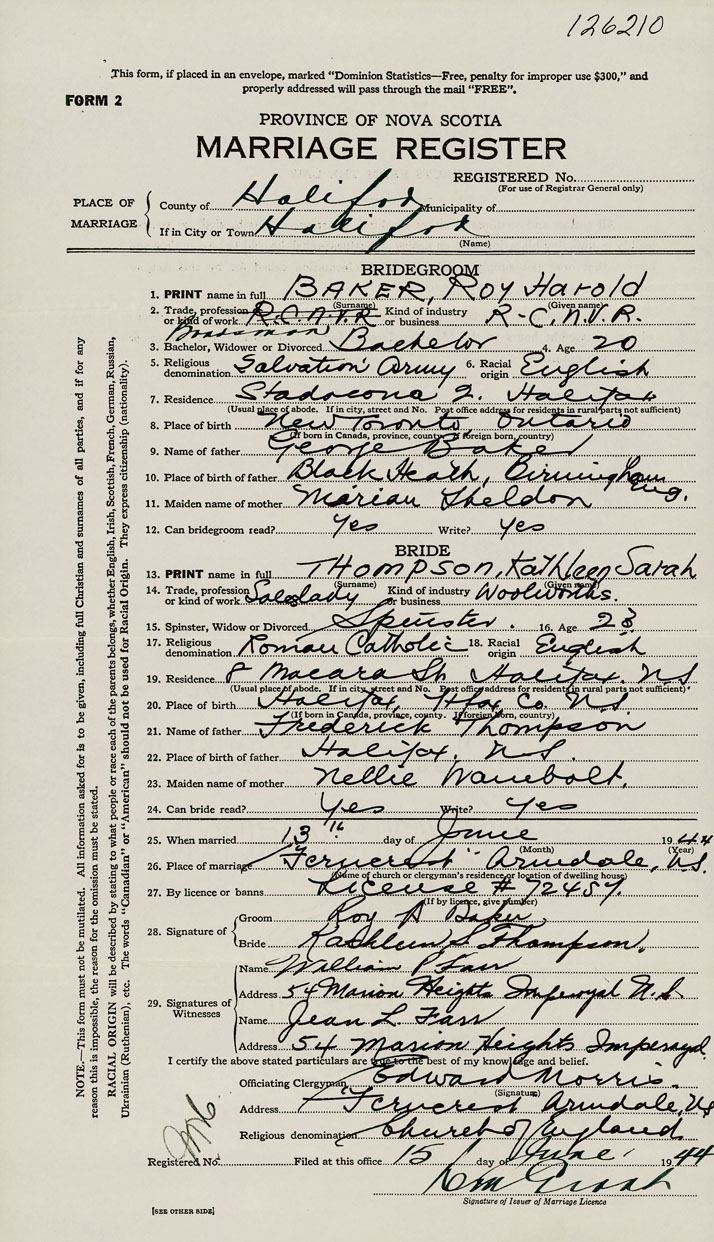 126210
This form, if placed in an envelope, marked “Dominion Statistics—Free, penalty for improper use $300,” and
properly addressed will pass through the mail “FREE”.
FORM 2
PROVINCE OF NOVA SCOTIA
MARRIAGE REGISTER
REGISTERED No.
(For use of Registrar General only)
PLACE OF MARRIAGE
County of Halifax Municipality of
If in City or Town Halifax
(Name)
BRIDEGROOM
1. PRINT name in full BAKER, Roy Harold
(Surname) (Given name)
2. Trade, profession or kind of work R.C.N.V.R. Kind of industry or business R.C.N.V.R.
3. Bachelor, Widower or Divorced Bachelor 4. Age 20
5. Religious denomination Salvation Army 6. Racial origin English
7. Residence Stadacona 2. Halifax
(Usual place of abode. If in city, street and No. Post office address for residents in rural parts not sufficient)
8. Place of birth New Toronto, Ontario
(If born in Canada, province, county. If foreign born, country)
9. Name of father George Baker
10. Place of birth of father Black Heath, Birmingham Eng.
11. Maiden name of mother Marian Sheldon
12. Can bridegroom read? Yes Write? Yes
BRIDE
13. PRINT name in full THOMPSON, Kathleen Sarah
(Surname) (Given name)
14. Trade, profession or kind of work Saleslady Kind of industry or business Woolworths.
15. Spinster, Widow or Divorced Spinster. 16. Age 23
17. Religious denomination Roman Catholic 18. Racial origin English
19. Residence 8 Macara St. Halifax. N.S
(Usual place of abode. If in city, street and No. Post office address for residents in rural parts not sufficient)
20. Place of birth Halifax, Hfax Co. N.S
(If born in Canada, province, county. If foreign born, country)
21. Name of father Frederick Thompson
22. Place of birth of father Halifax, N.S.
23. Maiden name of mother Nellie Wambolt.
24. Can bride read? Yes Write? Yes
25. When married 13th day of June 1944
(Month) (Year)
26. Place of marriage "Ferncrest" Armdale, N.S.
(Name of church or clergyman's residence or location of dwelling house)
27. By licence or banns License # 72457.
(If by licence, give number)
28. Signature of
Groom Roy H Baker
Bride Kathleen S. Thompson.
29. Signatures of Witnesses
Name William P Farr
Address 54 Marion Heights Imperoyal N.S.
Name Jean L. Farr
Address 54 Marion Heights Imperoyal
I certify the above stated particulars are true to the best of my knowledge and belief.
Officiating Clergyman Edward Morris.
(Signature)
Address "Ferncrest Armdale, NS
Religious denomination Church of England
Registered No. Filed at this office 15 day of June 1944
Signature of Issuer of Marriage Licence
[SEE OTHER SIDE]
NOTE.—This form must not be mutilated. All information asked for is to be given, including full Christian and surnames of all parties, and if for any
reason this is impossible, the reason for the omission must be stated.
RACIAL ORIGIN will be described by stating to what people or race each of the parents belongs, whether English, Irish, Scottish, French, German, Russian,
Ukrainian (Ruthenian), etc. The words “Canadian” or “American” should not be used for Racial Origin. They express citizenship (nationality).